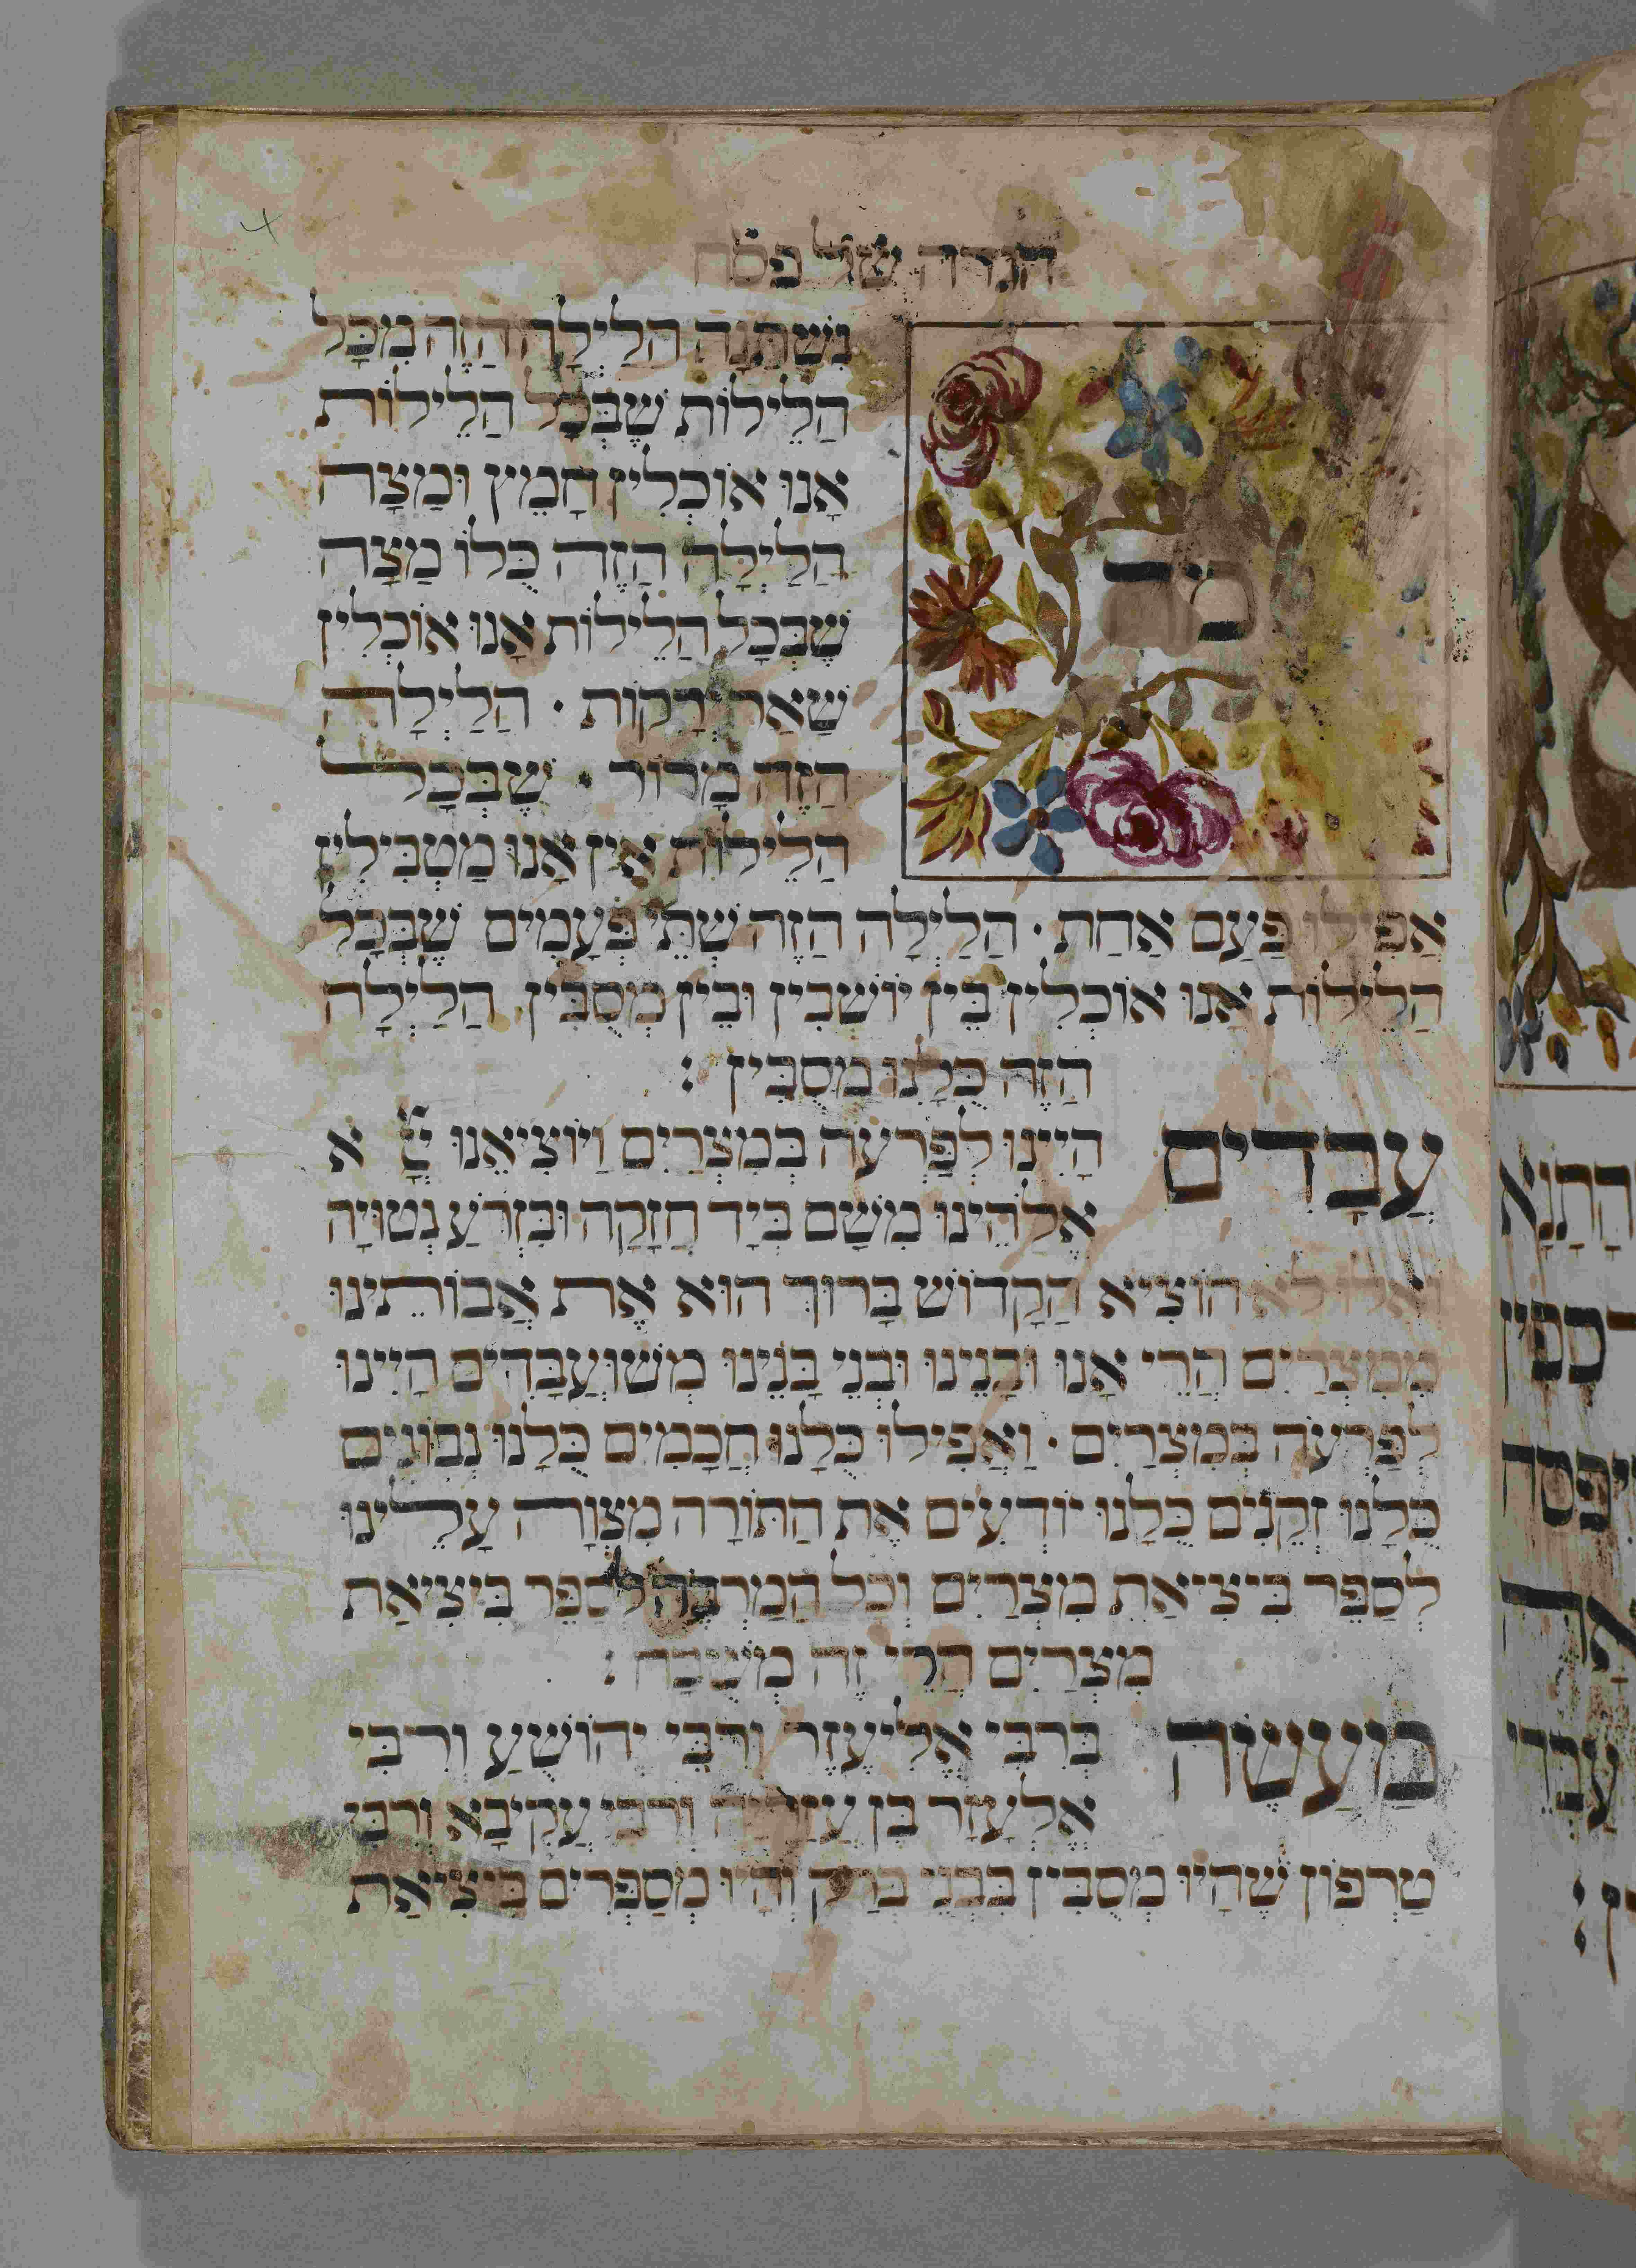 הגדה של פסח
מה
נִשְׁתַּנָה הַלַיְלָה הַזֶה מִכָּל
הַלֵילוֹת שֶׁבְּכָל הַלֵילוֹת
אָנוּ אוֹכְלִין חָמֵץ וּמַצָה
הַלַיְלָה הַזֶה כֻּלוֹ מַצָה
שֶׁבְּכָל הַלֵילוֹת אָנוּ אוֹכְלִין
שְׁאַר יְרָקוֹת · הַלַיְלָה
הַזֶה מָרוֹר · שֶׁבְּכָל
הַלֵילוֹת אֵין אָנוּ מַטְבִּילִין
אֲפִילוּ פַּעַם אַחַת · הַלַיְלָה הַזֶה שְׁתֵּי פְּעָמִים שֶׁבְּכָל
הַלֵילוֹת אָנוּ אוֹכְלִין בֵּין יוֹשְׁבִין וּבֵין מְסֻבִּין הַלַיְלָה
הַזֶה כֻּלָנוּ מְסֻבִּין :
עֲבָדִים הָיִינוּ לְפַּרְעֹה בְּמִצְרַיִם וַיוֹצִיאֵנוּ יְיָ א
אֱלֹהֵינוּ מִשָׁם בְּיָד חֲזָקָה וּבִּזְרֹעַ נְטוּיָה
וְאִלוּ לֹא הוֹצִיא הַקָדוֹשׁ בָּרוּךְ הוּא אֶת אֲבוֹתֵינוּ
מִמִצְרַיִם הֲרֵי אָנוּ וּבָנֵינוּ וּבְנֵי בָּנֵינוּ מְשׁוּעֲבָּדִים הָיִינוּ
לְפַּרְעֹה בְּמִצְרַיִם · וַאֲפִילוּ כֻּלָנוּ חֲכָמִים כֻּלָנוּ נְבוֹנִים
כֻּלָנוּ זְקֵנִים כֻּלָנוּ יוֹדְעִים אֶת הַתּוֹרָה מִצְוָה עָלֵינוּ
לְסַפֵּר בִּיצִיאַת מִצְרַיִם וְכָל הַמַרְבֶּה לְסַפֵּר בִּיצִיאַת
מִצְרַיִם הֲרֵי זֶה מְשֻׁבָּח :
מַעֲשֶׂה בְּרִבִּי אֱלִיעֶזֶר וְרִבִּי יְהוֹשֻׁעַ וְרִבִּי
אֶלְעָזָר בֶּן עֲזַרְיָה וְרִבִּי עֲקִיבָא וְרִבִּי
טַרְפוֹן שֶׁהָיוּ מְסֻבִּין בִּבְנֵי בְרַק וְהָיוּ מְסַפְּרִים בִּיצִיאַת